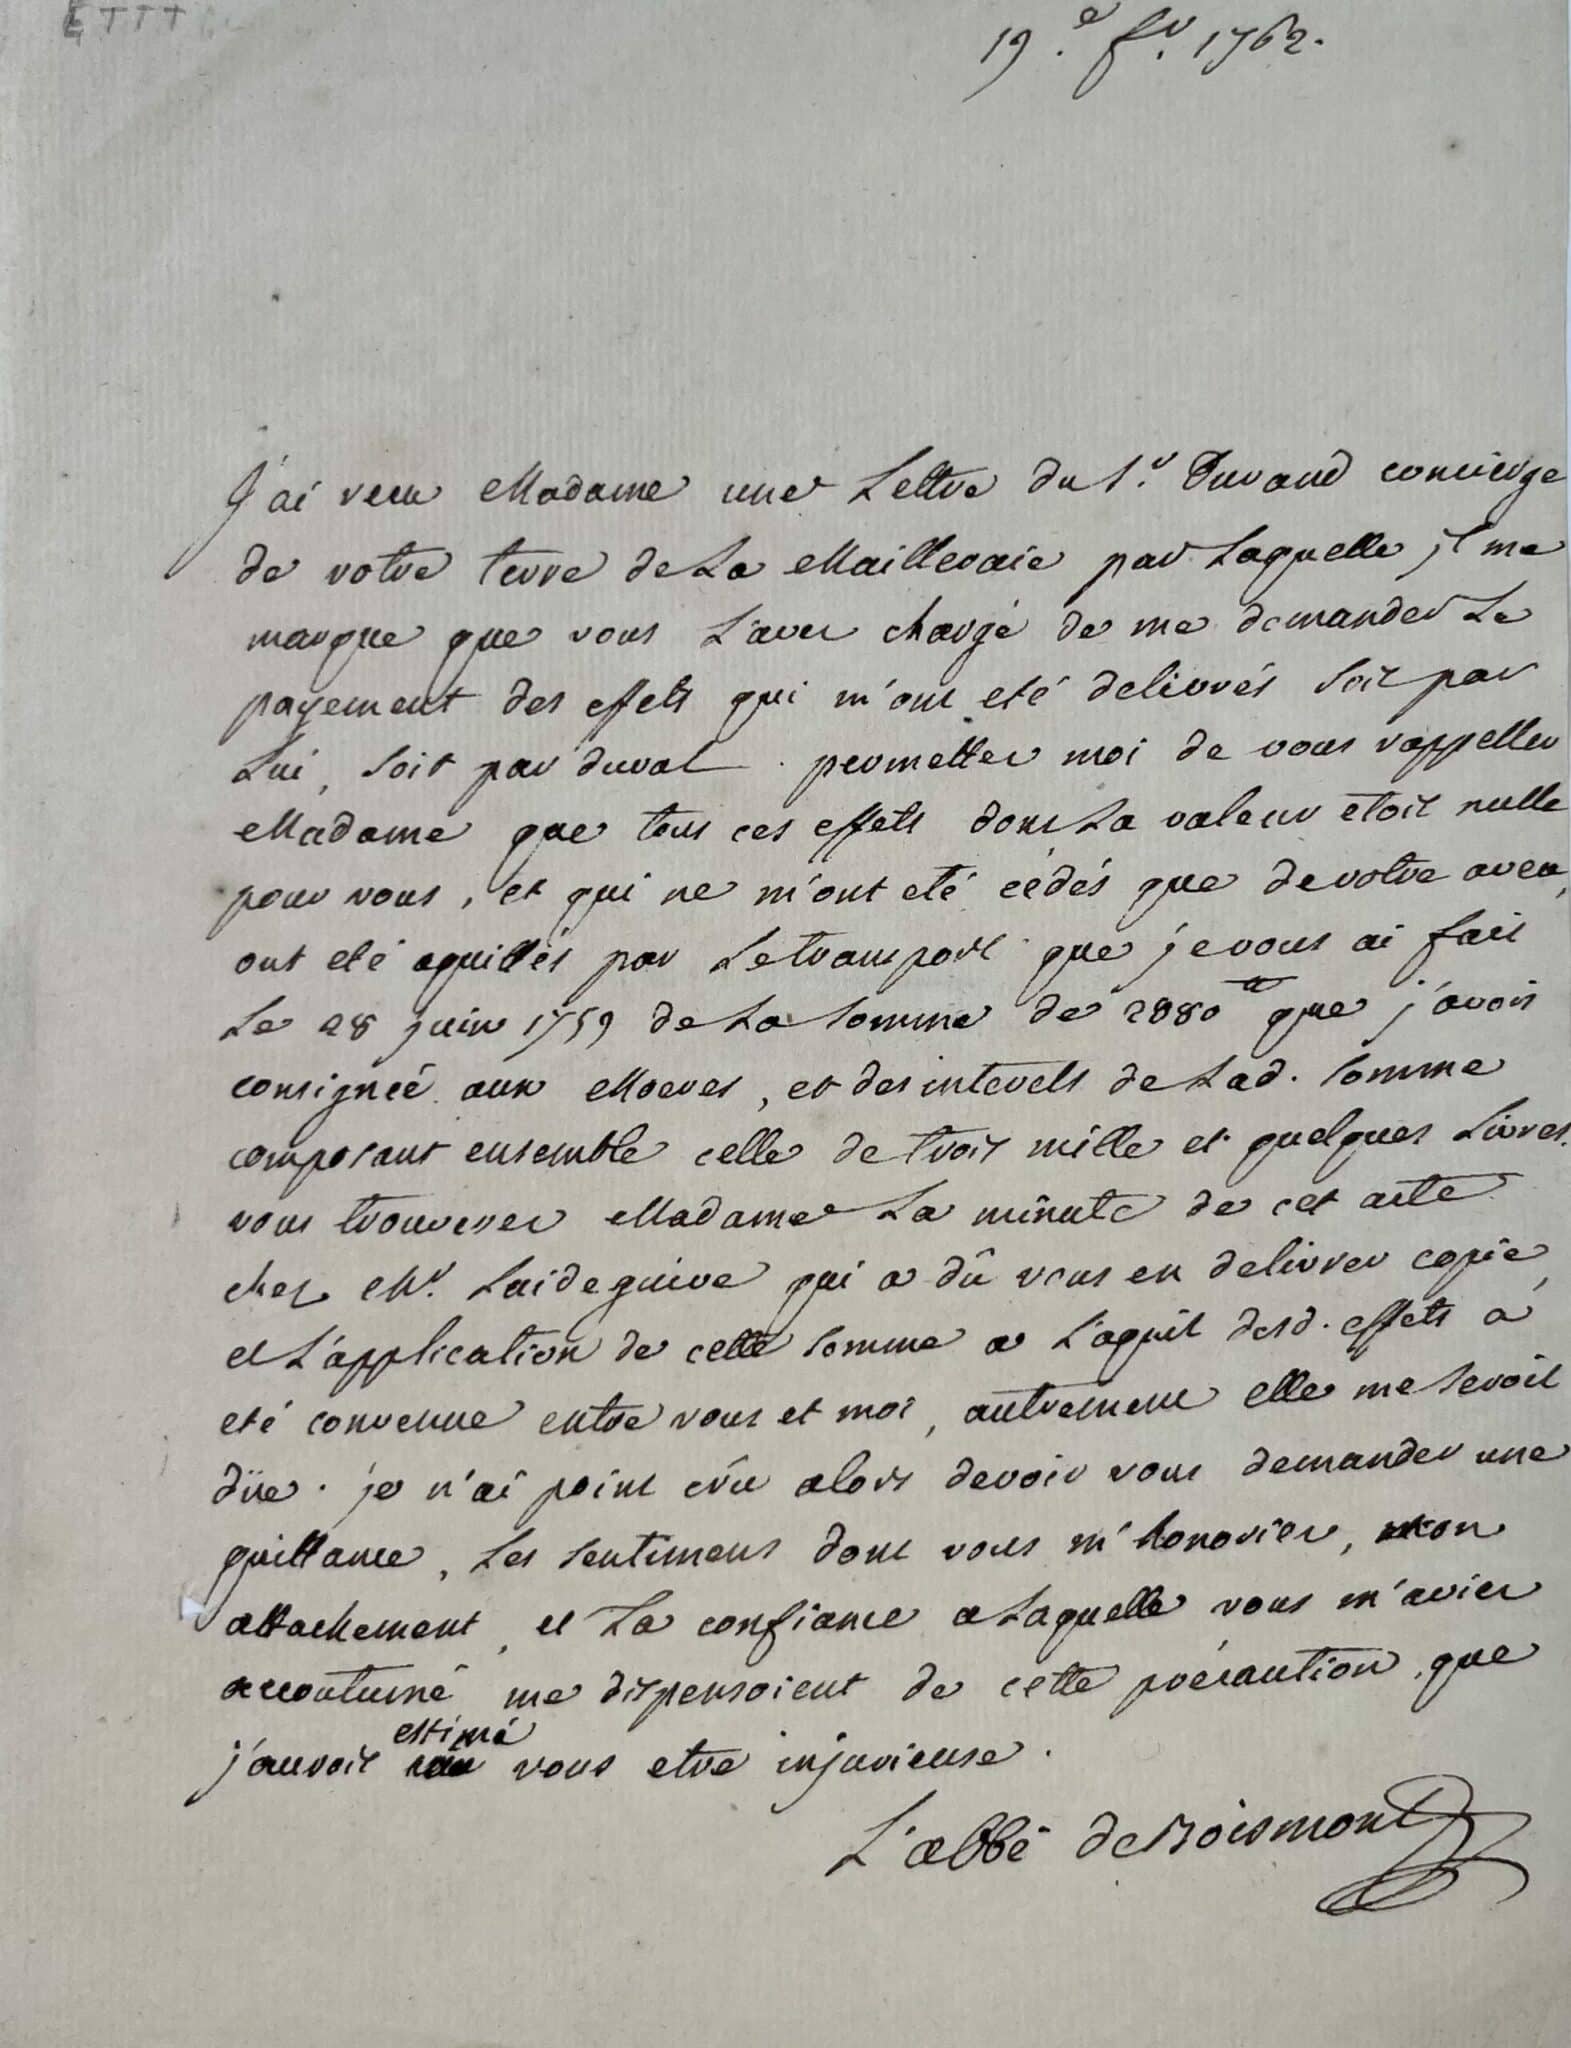 ETTT
19.e fv. 1762.
J'ai recu Madame une Lettre du Sr. Durand concierge
de votre terre de La Mailleraie par Laquelle il me
marque que vous L'avez chargé de me demander Le
payement des effets qui m'ont eté delivrés soit par
Lui, soit par duval. permettez moi de vous rappeller
Madame que tous ces effets dont La valeur etoit nulle
pour vous, et qui ne m'ont eté cédés que de votre aveu,
ont eté aquittés par Le transport que je vous ai fait
Le 28 juin 1759 de La somme de 2880tt que j'avois
consignée aux , et des interets de Lad. somme
composant ensemble celle de trois mille et quelques Livres.
vous trouverez Madame La minute de cet acte
chez Mr. Laideguive qui a dû vous en delivrer copie,
et L'application de cette somme a L'aquit desd. effets a
eté convenue entre vous et moi, autrement elle me seroit
düe. je n'ai point crû alors devoir vous demander une
quittance, Les sentimens dont vous m'honoriez, mon
attachement, et La confiance a Laquelle vous m'aviez
accoutumé me dispensoient de cette précaution, que
j'aurois estimé vous etre injurieuse.
L'abbé de Boismont